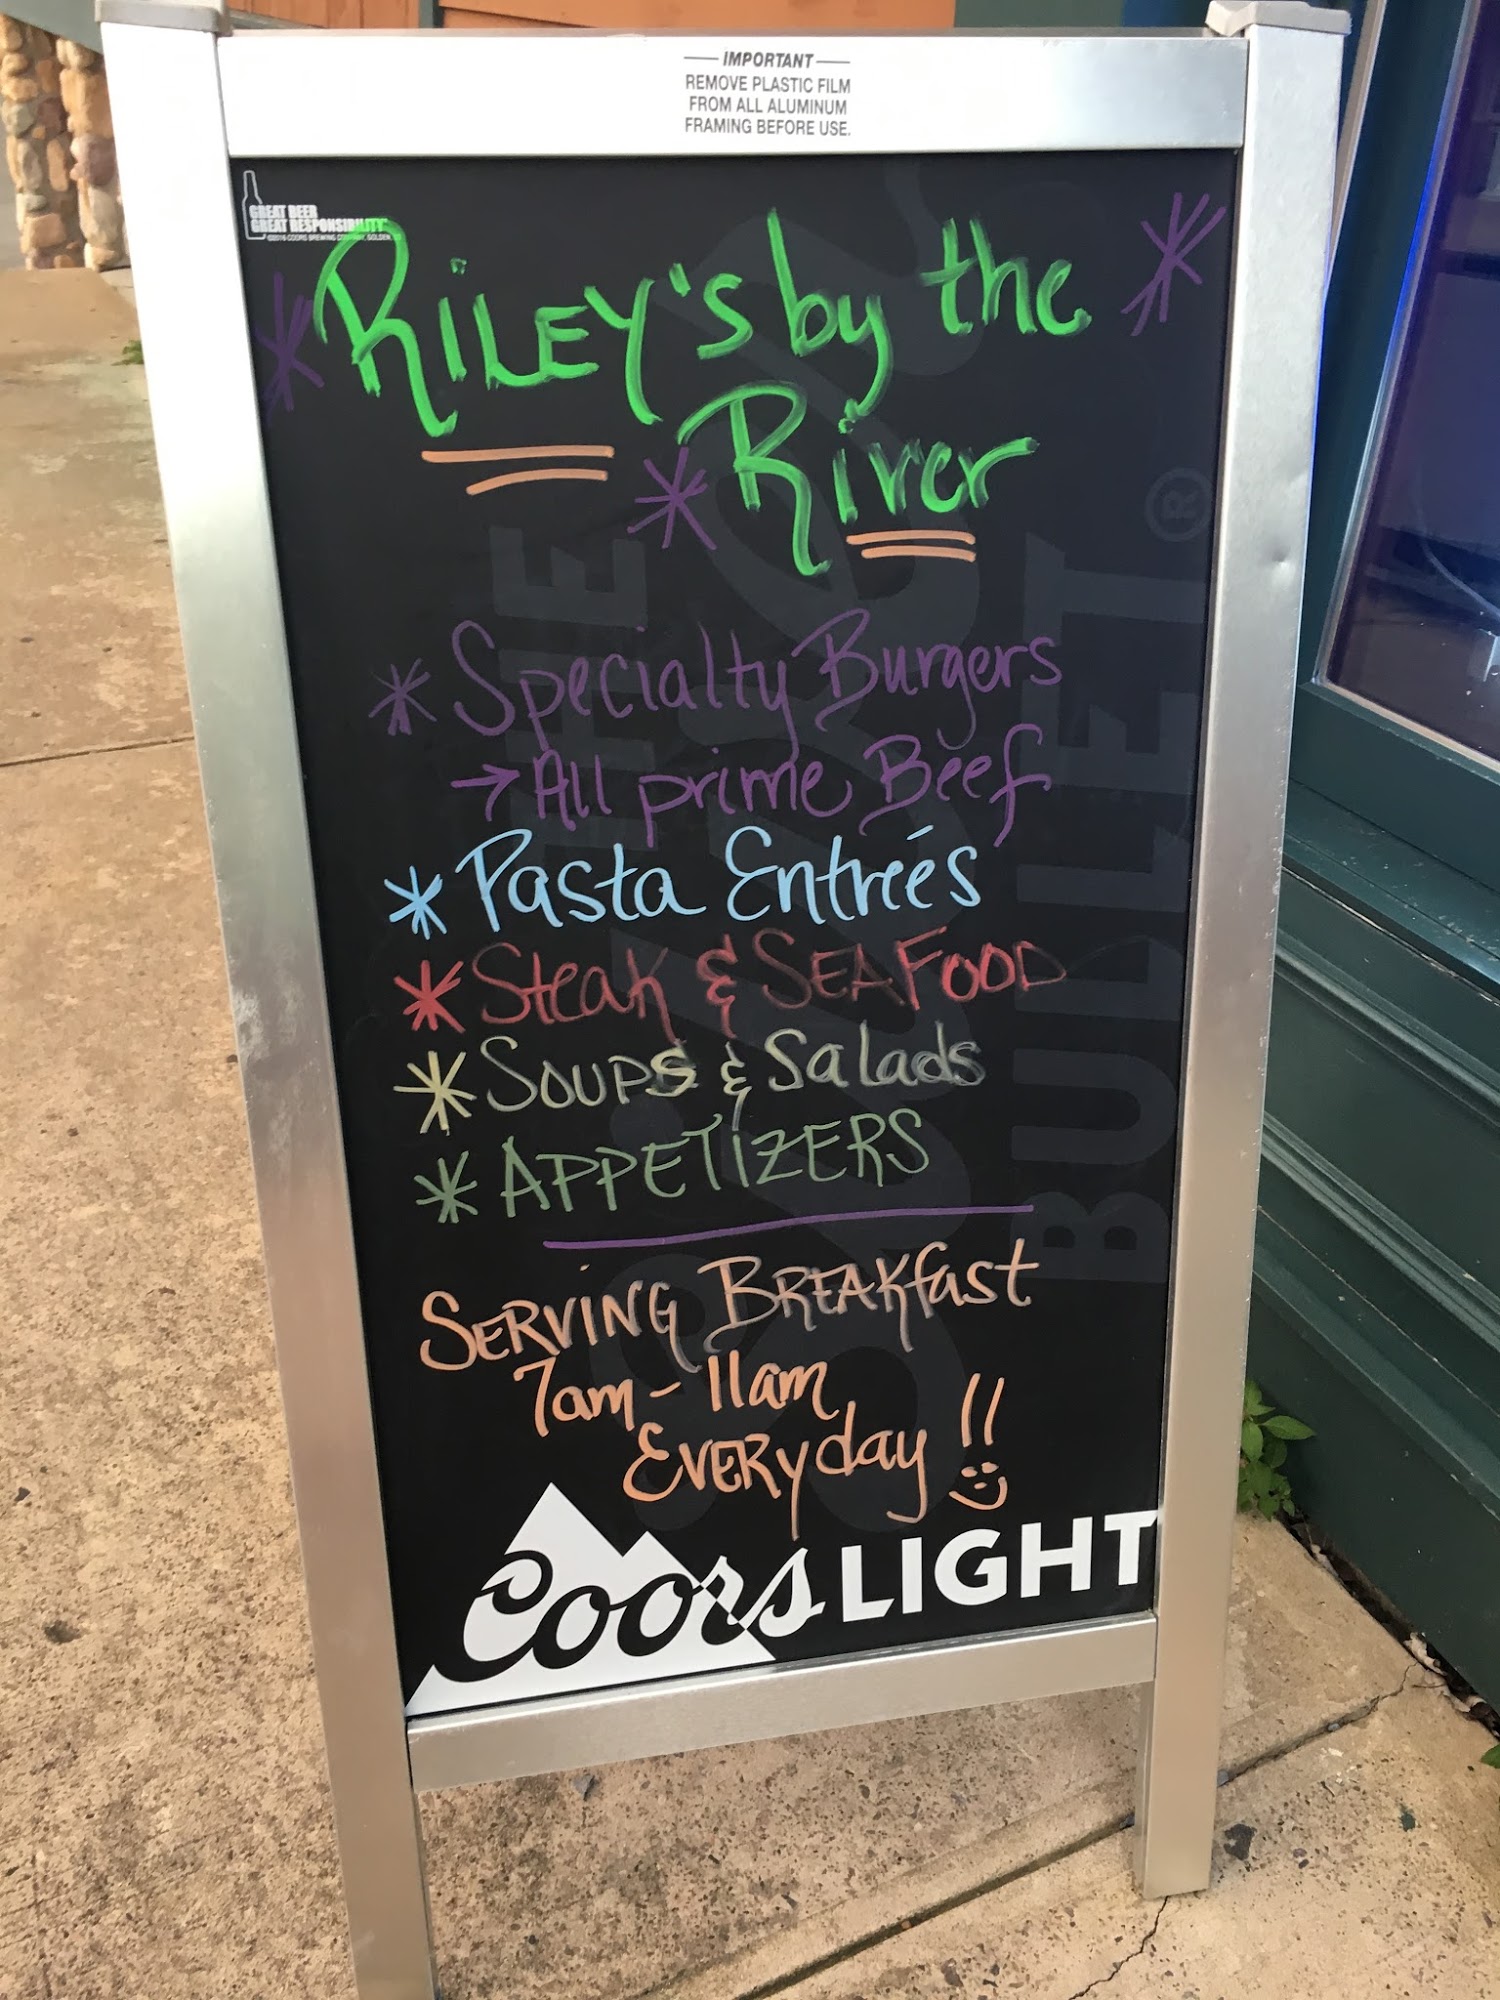 IMPORTANT
REMOVE PLASTIC FILM
FROM ALL ALUMINUM
FRAMING BEFORE USE.
GREAT BEER
GREAT RESPONSIBILITY
©2016 COORS BREWING COMPANY, GOLDEN,
RiLEY's by the
River
* Specialty Burgers
→ All prime Beef
* Pasta Entrées
* Steak & SEAFOOD
* SOUPS & Salads
* APPETIZERS
SERVING BREAKfast
7am - 11am
EVERyday !!
THE
Silver
BULLET®
Coors LIGHT